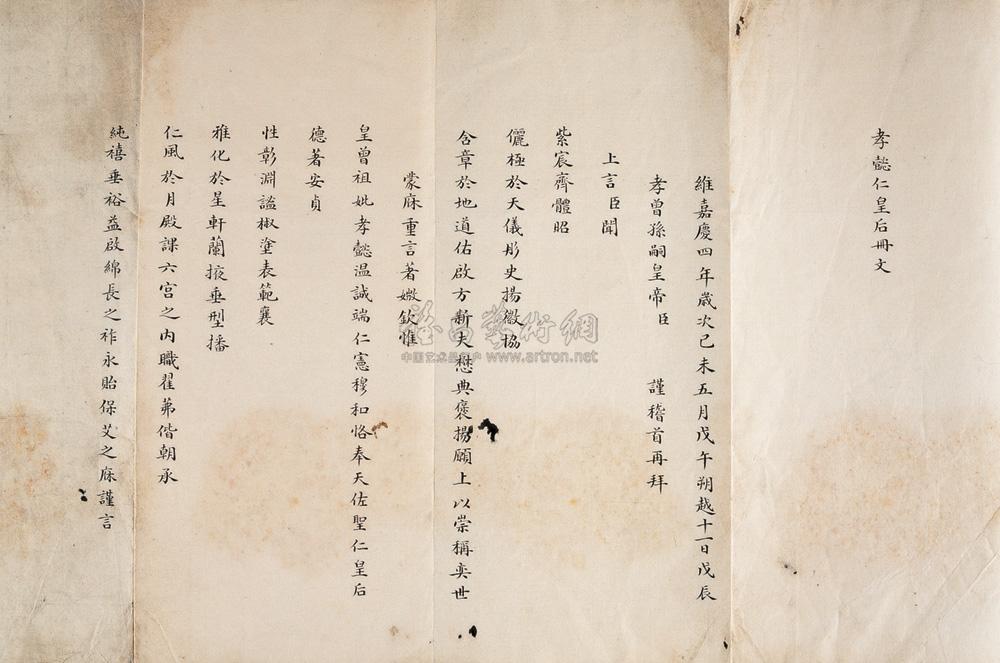 孝懿仁皇后冊文
維嘉慶四年歲次己未五月戊午朔越十一日戊辰
孝曾孫嗣皇帝臣 謹稽首再拜
上言臣聞
紫宸齊體昭
儷極於天儀彤史揚徽協
含章於地道佑啟方新夫懋典褒揚願上以崇稱奕世
蒙庥重言著媺欽惟
皇曾祖妣孝懿溫誠端仁憲穆和恪奉天佐聖仁皇后
德著安貞
性彰淵謐椒塗表範襄
雅化於星軒蘭掖垂型播
仁風於月殿課六宮之內職翟茀偕朝承
純禧垂裕益啟綿長之祚永貽保艾之庥謹言
雅昌藝術網
中国艺术品门户 www.artron.net